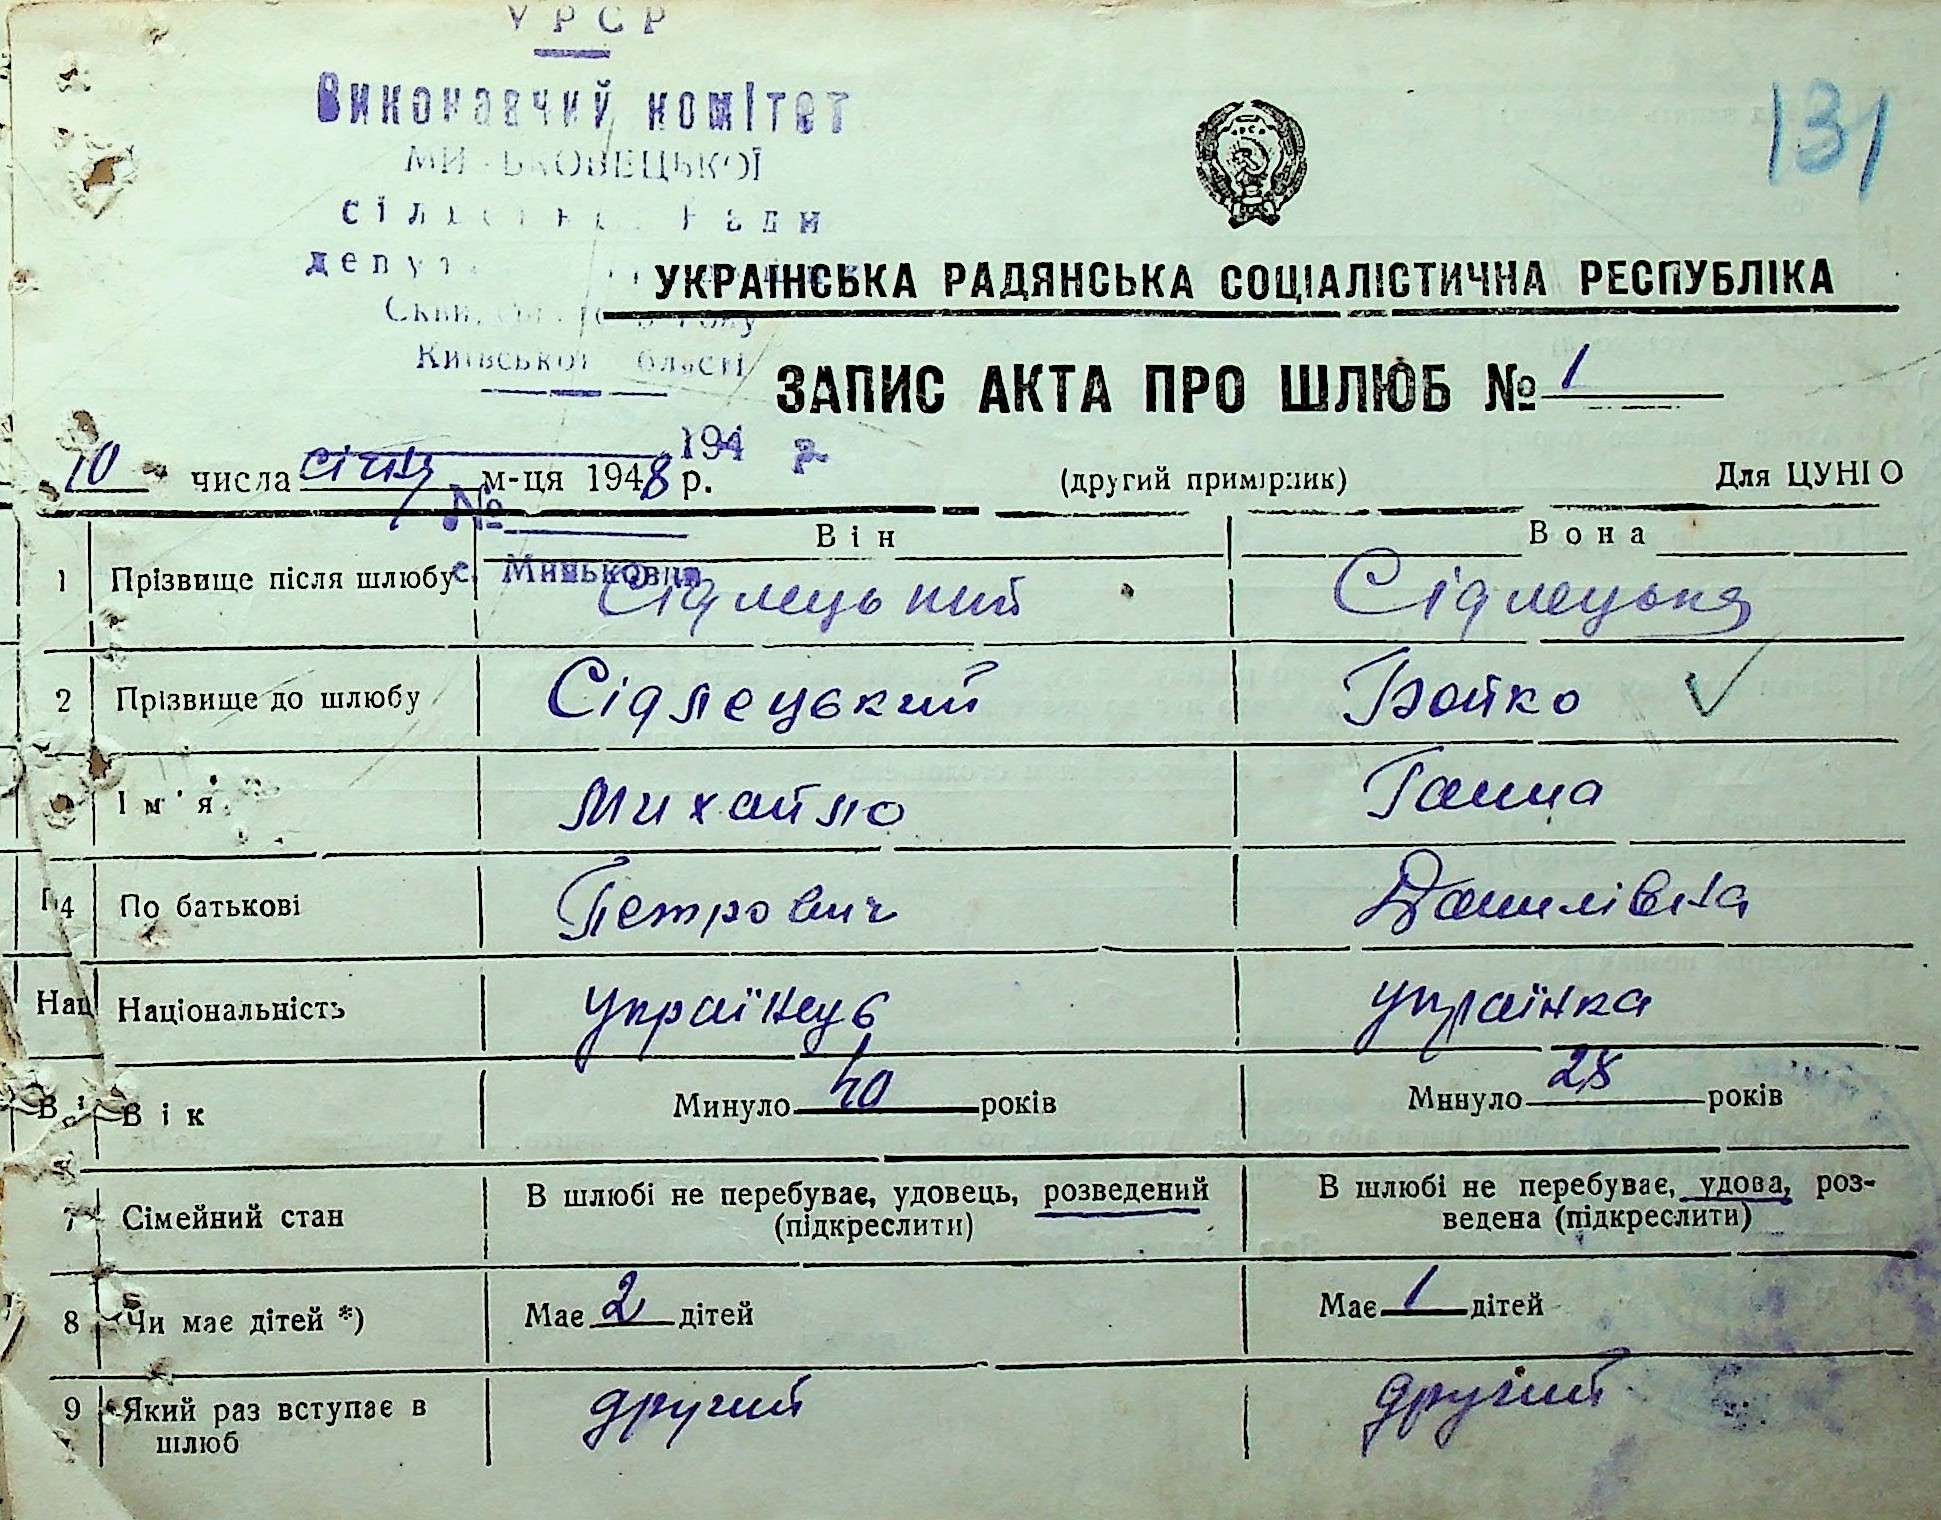 УРСР
Виконавчий комітет
МИНЬКОВЕЦЬКОЇ
сільської Ради
депут
Київської області
131
УКРАЇНСЬКА РАДЯНСЬКА СОЦІАЛІСТИЧНА РЕСПУБЛІКА
ЗАПИС АКТА ПРО ШЛЮБ № 1
194 р.
10 числа січня м-ця 1948 р. (другий примірник) Для ЦУНГО
№
с. Миньковці
Він Вона
1 Прізвище після шлюбу Сідлецький Сідлецька
2 Прізвище до шлюбу Сідлецький Бойко
Ім'я Михайло Ганна
4 По батькові Петрович Данилівна
Нац Національність українець українка
Ві Вік Минуло 40 років Минуло 28 років
7 Сімейний стан В шлюбі не перебуває, удовець, розведений (підкреслити) В шлюбі не перебуває, удова, роз-
ведена (підкреслити)
8 Чи має дітей *) Має 2 дітей Має 1 дітей
9 Який раз вступає в шлюб другий другий